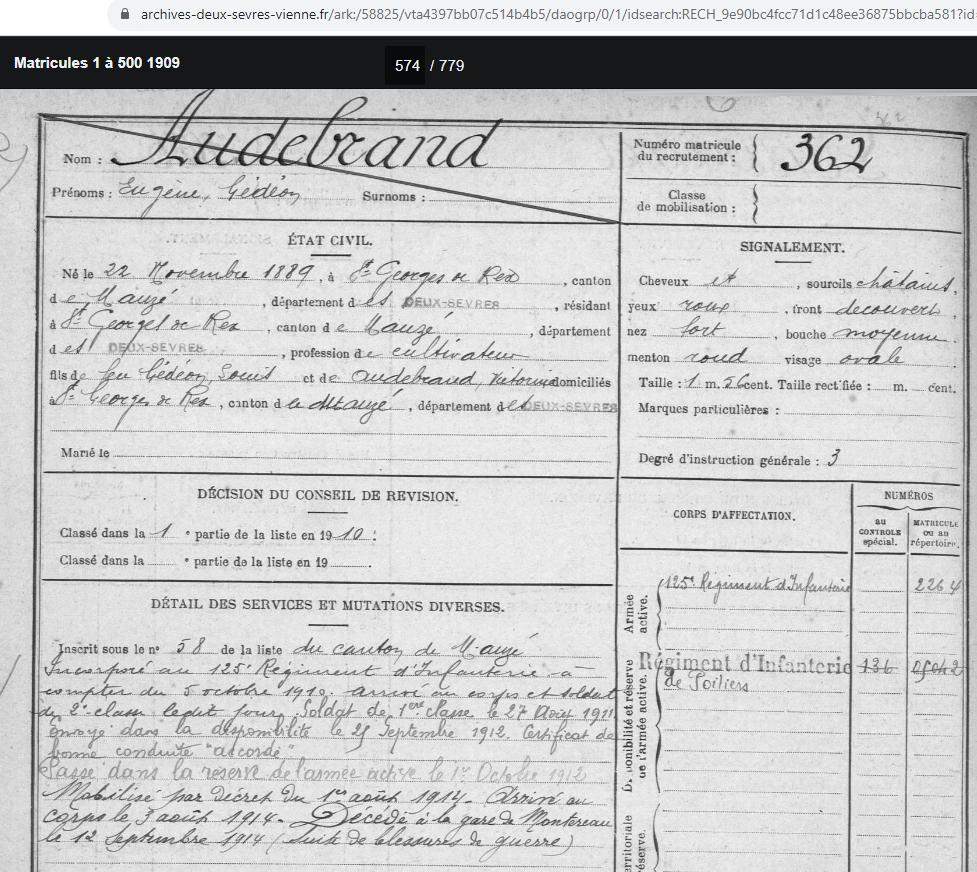 archives-deux-sevres-vienne.fr/ark:/58825/vta4397bb07c514b4b5/daogrp/0/1/idsearch:RECH_9e90bc4fcc71d1c48ee36875bbcba581?id
Matricules 1 à 500 1909
574 / 779
Nom : Audebrand
Prénoms : Eugène, Gédéon Surnoms :
Numéro matricule du recrutement : 362
Classe de mobilisation :
ÉTAT CIVIL.
Né le 22 Novembre 1889, à St Georges de Rex, canton
de Mauzé, département des DEUX-SEVRES, résidant
à St Georges de Rex, canton de Mauzé, département
des DEUX-SEVRES, profession de cultivateur
fils de feu Gédéon, Louis et de Audebrand, domiciliés
à St Georges de Rex, canton de Mauzé, département des DEUX-SEVRES
Marié le
SIGNALEMENT.
Cheveux et, sourcils châtains,
yeux roux, front découvert,
nez fort, bouche moyenne
menton rond visage ovale
Taille : 1 m. 56 cent. Taille rectifiée : m. cent.
Marques particulières :
Degré d'instruction générale : 3
DÉCISION DU CONSEIL DE REVISION.
Classé dans la 1e partie de la liste en 1910 :
Classé dans la e partie de la liste en 19 .
CORPS D'AFFECTATION.
NUMÉROS
au CONTROLE spécial.
MATRICULE ou au répertoire.
Armée active.
125e Régiment d'Infanterie 2264
Disponibilité et réserve de l'armée active.
Régiment d'Infanterie 136
de Poitiers
territoriale
réserve.
DÉTAIL DES SERVICES ET MUTATIONS DIVERSES.
Inscrit sous le n° 58 de la liste du canton de Mauzé
Incorporé au 125e Régiment d'Infanterie à
compter du 5 octobre 1910, arrivé au corps et soldat
de 2e classe ledit jour. Soldat de 1ère classe le 27 Août 1911
envoyé dans la disponibilité le 25 Septembre 1912. Certificat de
bonne conduite "accordé"
Passé dans la réserve de l'armée active le 1er Octobre 1912
Mobilisé par décret du 1er août 1914. Arrivé au
corps le 3 août 1914. Décédé à la gare de Montereau
le 12 Septembre 1914 (Suite de blessures de guerre)